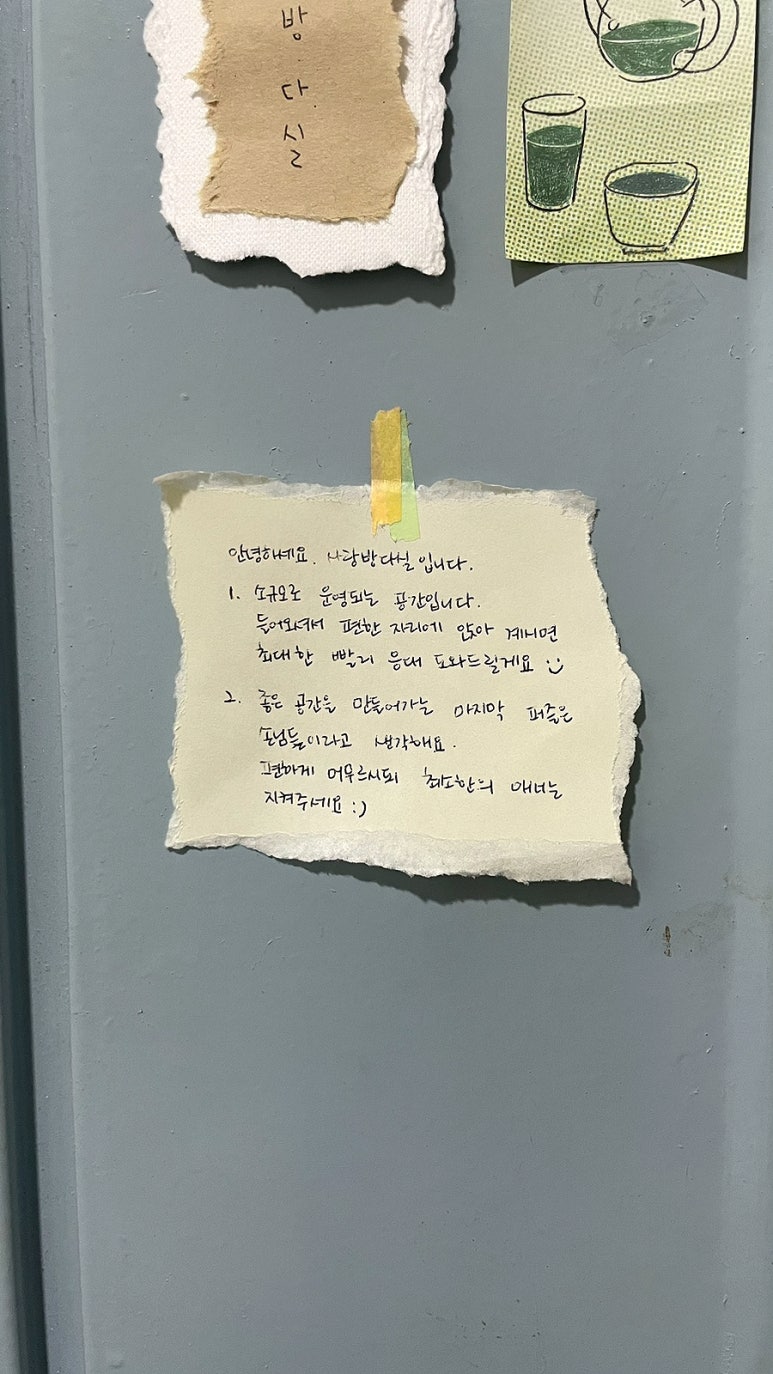 방
다
실
안녕하세요. 사랑방다실입니다.
1. 소규모로 운영되는 공간입니다.
들어와셔서 편한 자리에 앉아 계시면
최대한 빨리 응대 도와드릴게요 :)
2. 좋은 공간을 만들어가는 마지막 퍼즐은
손님들이라고 생각해요.
편하게 머무르시되 최소한의 매너는
지켜주세요 :)